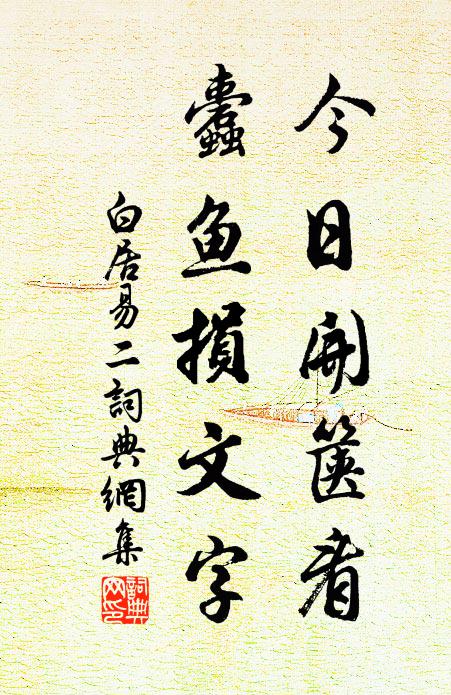 今日開篋看
蠹魚損文字
白居易二詞典網集
詞典網印